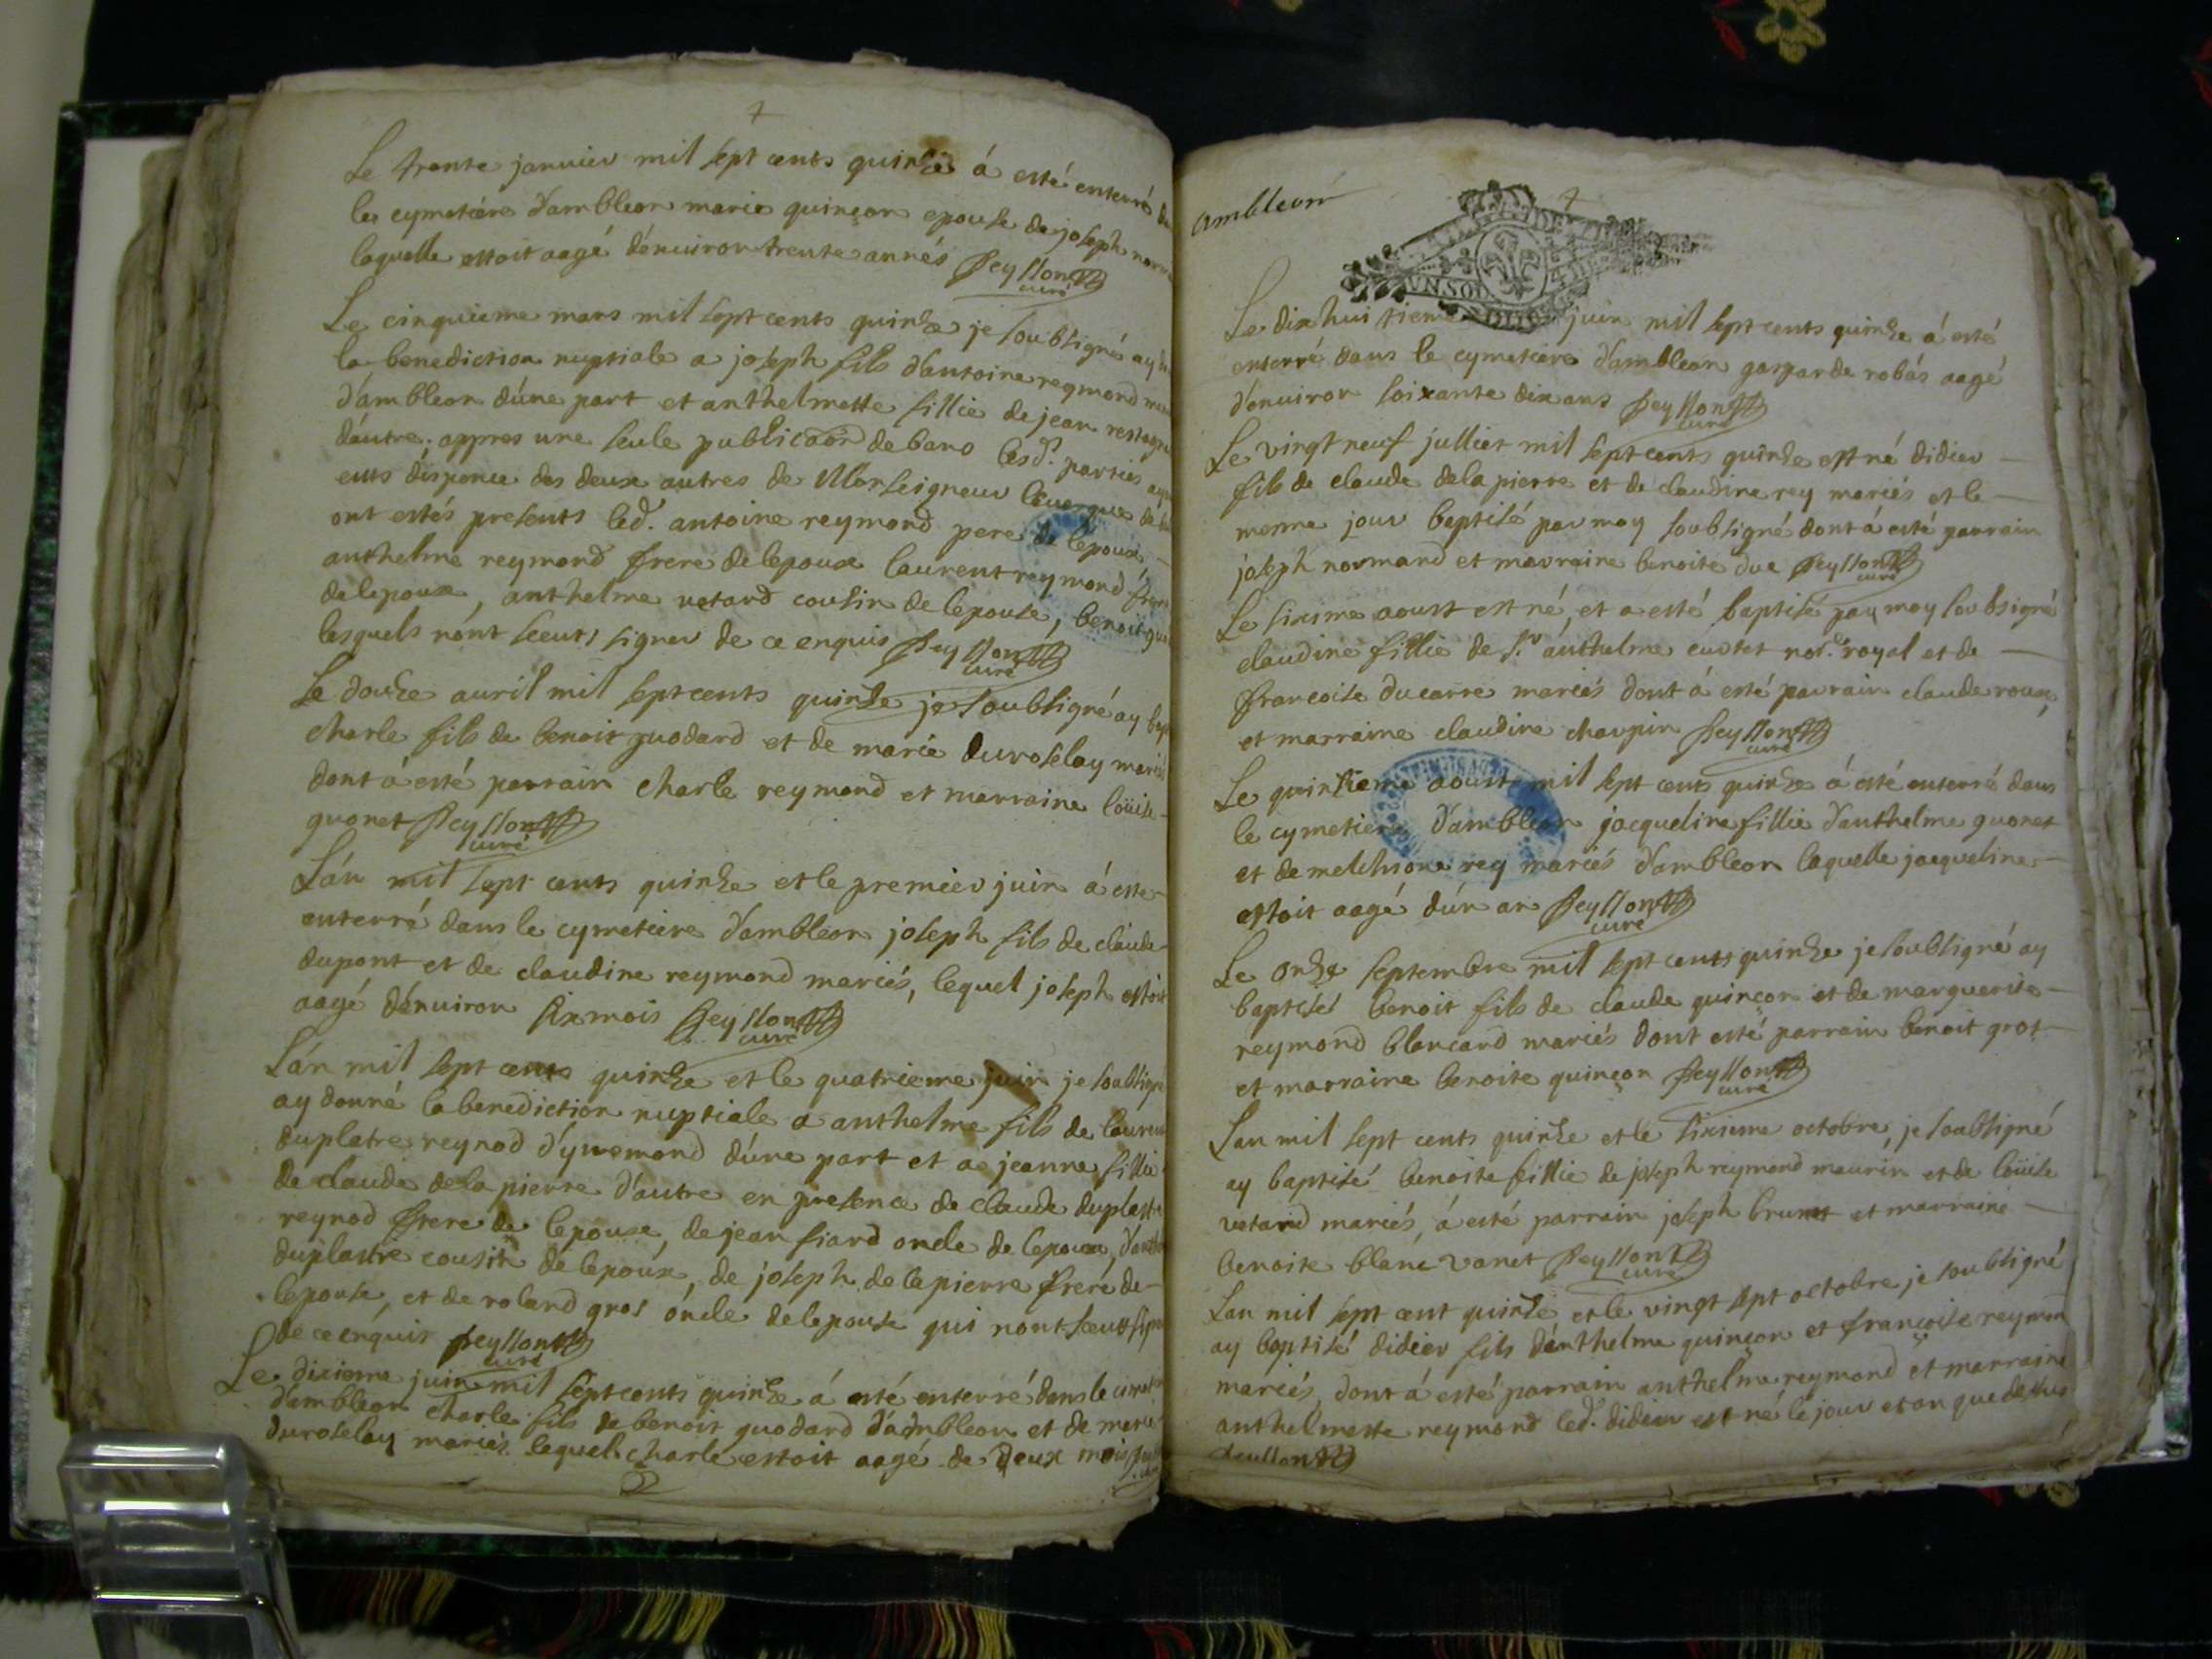 Le trente janvier mil sept cents quinze á esté enterré
les cymetiere d'ambleon marie quinçon epouse de joseph
laquelle estoit aagé dénuiron trente annés Peysson
curé
Le cinquieme mars mil sept cents quinze je soubsigné ay
la benediction nuptiale a joseph fils d'antoine reymond
d'ambleon dúne part et anthelmette fillie de jean
dáutre. appres une seule publicaõn de bans lesd. parties
eüts dispence des deux autres de Monseigneur léuesque de
ont estés presents led. antoine reymond pere de lepoux
anthelme reymond frere de lepoux laurent reymond frere
de lepoux, anthelme vetard cousin de lépouse, benoit
lesquels nónt sceuts signer de ce enquis Peysson
curé
Le douze auril mil sept cents quinze je soubsigné ay
charle fils de benoit guodard et de marie duroselay mariés
dont á esté parrain charle reymond et marraine loüise
guonet Peysson
curé
Lán mil sept cents quinze et le premier juin á esté
enterré dans le cymetiere d'ambleon joseph fils de claude
dupont et de claudine reymond mariés, lequel joseph estoit
aagé dénuiron six mois Peysson
curé
Lán mil sept cents quinze et le quatrieme juin je soubsigné
ay donné la benediction nuptiale a anthelme fils de
duplatre reynod d'yuemond dúne part et a jeanne fillie
de claude de la pierre d'autre en presence de claude duplastre
reynod frere de lepoux, de jean fiard oncle de lepoux,
duplastre cousin de lepoux, de joseph de la pierre frere de
lepouse, et de roland gros óncle de lepouse qui nont sceut
de ce enquis Peysson
curé
Le dixieme juin mil sept cents quinze á esté enterré dans le
d'ambleon charle fils de benoit guodard d'ambleon et de marie
duroselay mariés lequel charle estoit aagé de deux mois
ambleon
VN. SOL
Le dix huitieme juin mil sept cents quinze á esté
enterré dans le cymetiere d'ambleon gasparde robás aagé
d'enuiron soixante dix ans Peysson
curé
Le vingt neuf julliet mil sept cents quinze est né didier
fils de claude de la pierre et de claudine rey mariés et le
meme jour baptisé par moy soubsigné dont á esté parrain
joseph normand et marraine benoite due Peysson
curé
Le sixime aoust est né, et a esté baptisé par moy soubsigné
claudine fillie de Sr anthelme not.re royal et de
francoise ducarre mariés dont á esté parrain claude roux,
et marraine claudine charpin Peysson
curé
Le quinzieme aoust mil sept cents quinze á esté enterré dans
le cymetiere d'ambleon jacqueline fillie d'anthelme guonet
et de melchione rey mariés d'ambleon laquelle jacqueline
estoit aagé dún an Peysson
curé
Le onze septembre mil sept cents quinze je soubsigné ay
baptisé benoit fils de claude quinçon et de marguerite
reymond blancard mariés dont esté parrain benoit grot
et marraine benoite quinçon Peysson
curé
Lan mil sept cents quinze et le sixieme octobre, je soubsigné
ay baptisé benoite fillie de joseph reymond maurin et de loüise
vetard mariés, á esté parrain joseph brunet et marraine
benoite blanc vanet Peysson
curé
Lan mil sept cent quinze et le vingt sept octobre je soubsigné
ay baptisé didier fils dánthelme quinçon et françoise reymond
mariés, dont á esté parrain anthelme reymond et marraine
anthelmette reymond led. didier est né le jour et an que dessus
Peysson